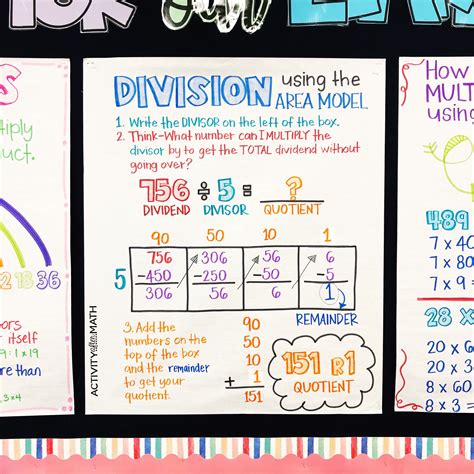 S
tiply
duct.
12 18 36
ors
r itself
9: 1×19
ore than
2, 3×4
DIVISION using the
AREA MODEL
1. Write the DIVISOR on the left of the box.
2. Think-What number can I MULTIPLY the
divisor by to get the TOTAL dividend without
going over?
756 ÷ 5 = ?
DIVIDEND DIVISOR QUOTIENT
90 50 10 1
5 756 306 56 6
-450 -250 -50 -5
306 56 6 1
REMAINDER
3. Add the
numbers on the
top of the box
and the remainder
to get your
quotient.
90
50
10
+ 1
151
151 R1
QUOTIENT
ACTIVITY after MATH
How
MULT
using
489
7 x 40
7 x 80
7 x 9 =
28 x
20 x 6
20 x 3
8 x 60
8 x 3 =